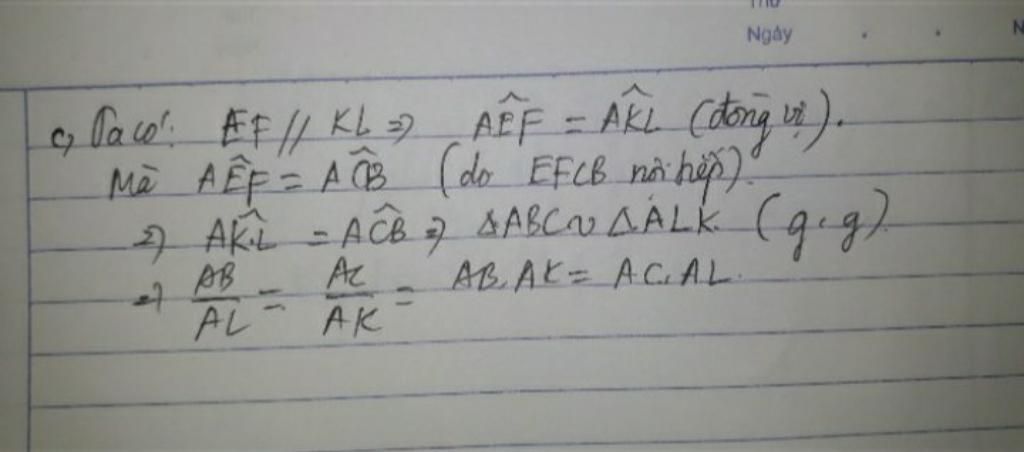 Thứ
Ngày . . N
c, Ta có: EF // KL => AÊF = AK̂L (đồng vị).
Mà AÊF = AĈB (do EFCB nội tiếp).
=> AK̂L = AĈB => ΔABC ~ ΔALK. (g.g)
=> AB/AL = AC/AK = AB.AK = AC.AL.